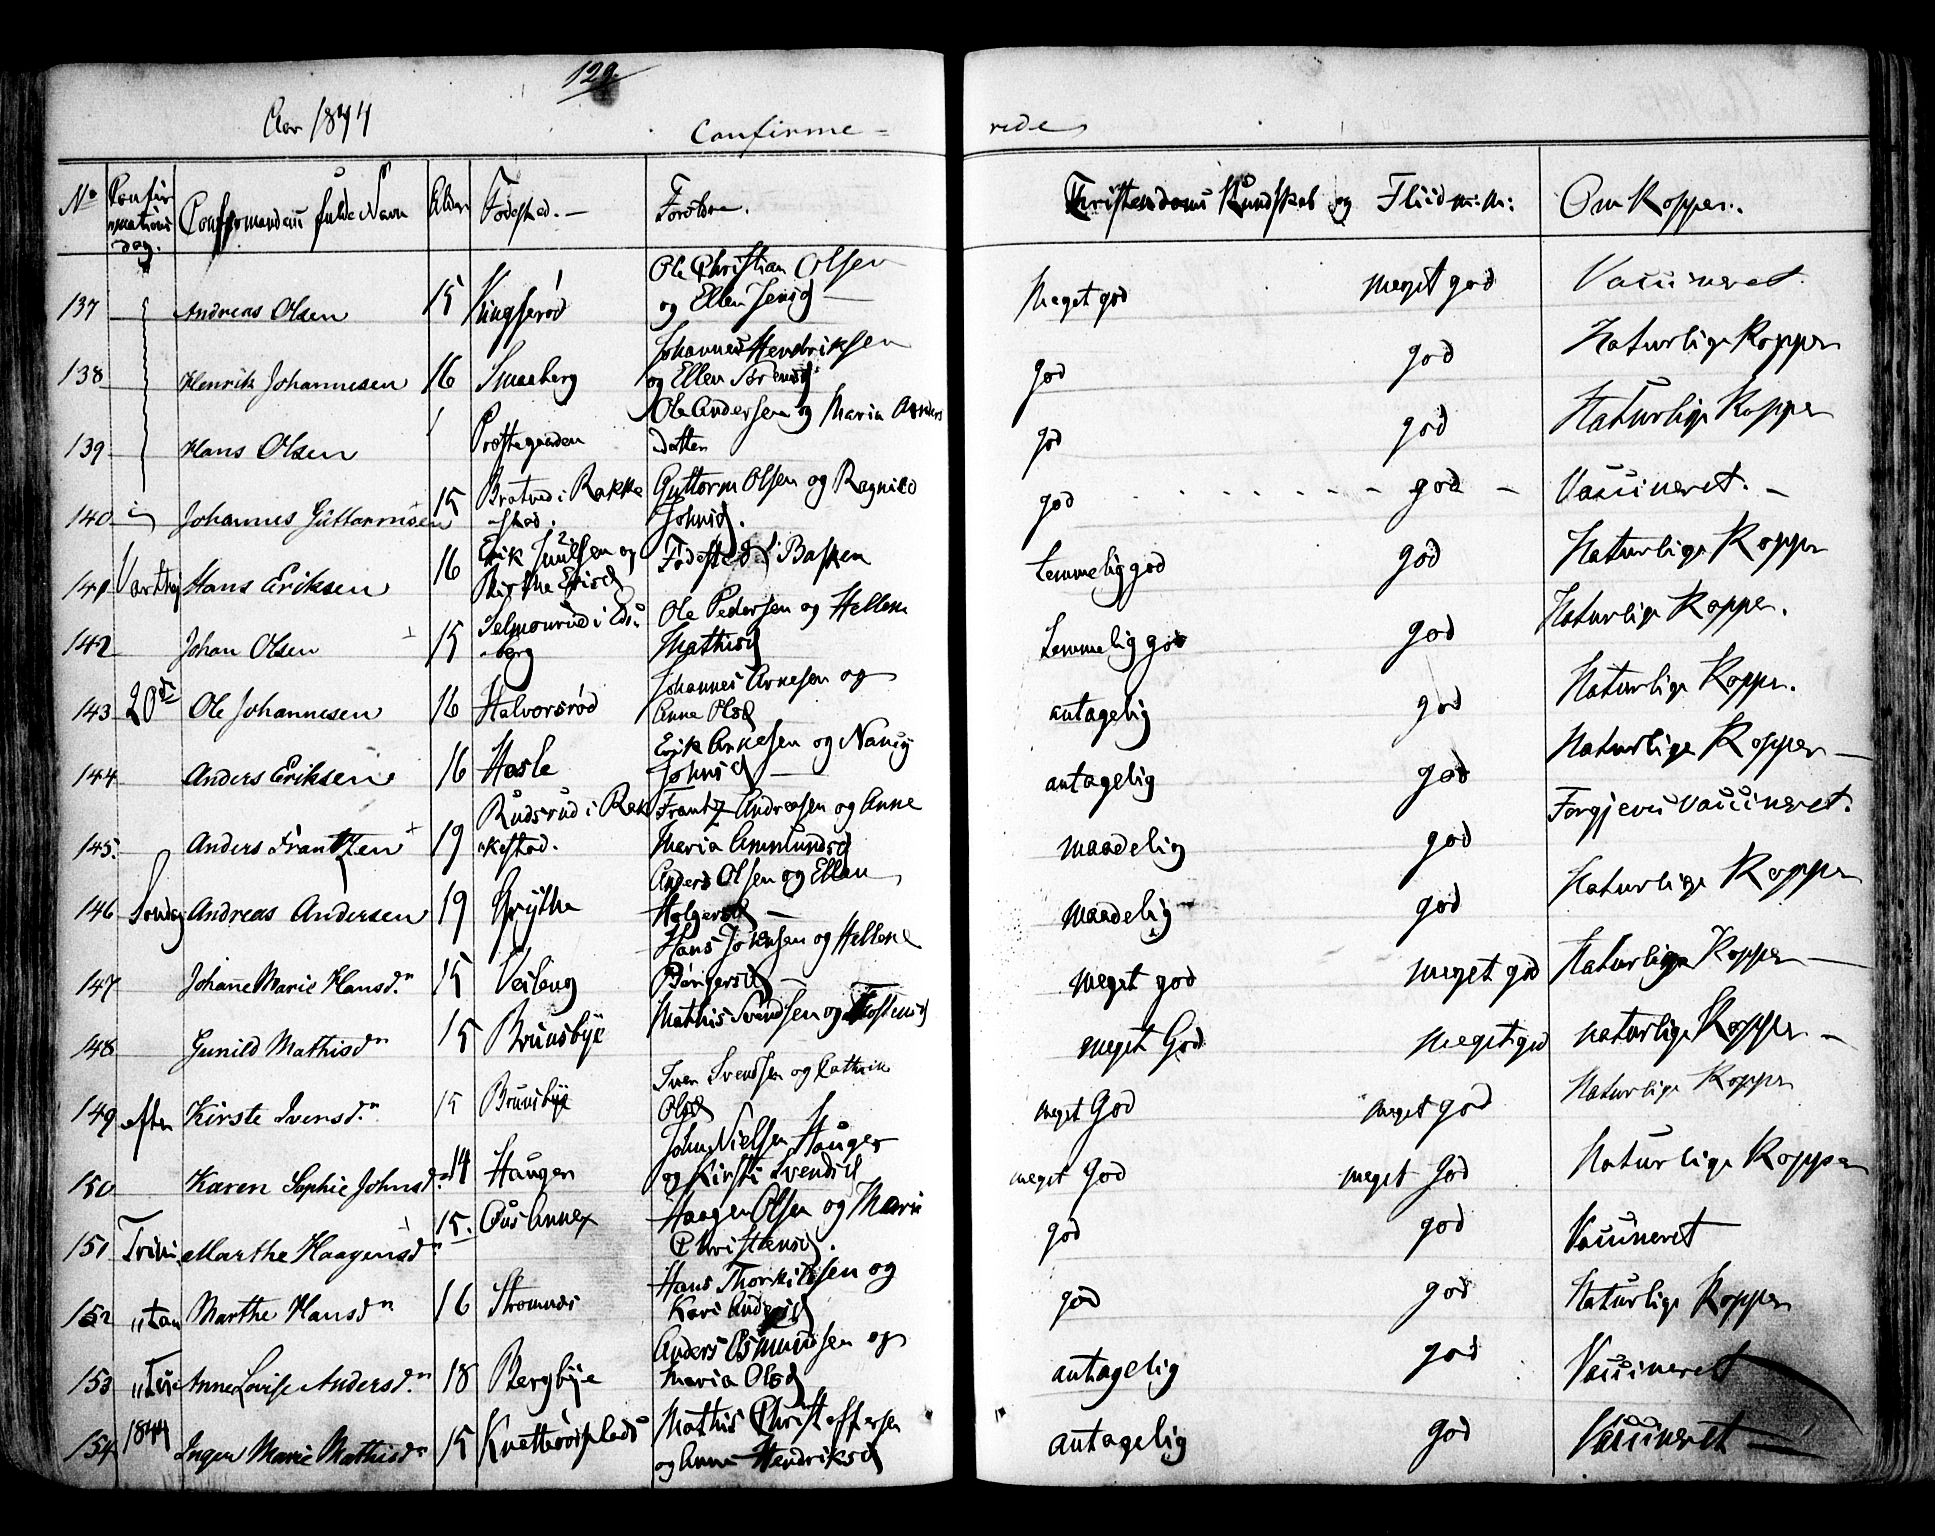 129.
Aar 1844
Confirme = rede
No Confirmations dag. Confirmandens fulde Navn Alder Fødested. Forældre. Christendoms Kundskab og Fliid m: m: Om Kopper.
137 Andreas Olsen 15 Kingserød Ole Christian Olsen og Ellen Jensd Meget god meget god Vaccineret.
138 Henrik Johannesen 16 Smaaberg Johannes Hendriksen og Ellen Sørensd god god Naturlige Kopper
139 Hans Olsen Præstegaarden Ole Andersen og Maria Anders datter god god Naturlige Kopper
140 i Johannes Guttormsen 15 Bratved i Rakke -stad. Guttorm Olsen og Ragnild Johnsd. god god Vaccineret.
141 Hans Eriksen 16 Erik Juulsen og Birthe Erisd Fødested Basken temmelig god god Naturlige Kopper
142 Johan Olsen 15 Selmonrud i Eds- -berg Ole Pedersen og Hellene Mathisd temmelig god god Naturlige Kopper.
143 20de Ole Johannesen 16 Halvorsrød Johannes Arnesen og Anne Olsd antagelig god Naturlige Kopper.
144 Anders Eriksen 16 Hasle Erik Arnesen og Nancy Johnsd antagelig god Naturlige Kopper
145. Anders Frantzen 19 Rudsrud i Rak -kestad. Frantz Andreasen og Anne Maria Ammundsd maadelig god Forgjeves vaccineret.
146 Søndag Andreas Andersen 19 Grÿthe Anders Olsen og Ellen Holgersd maadelig god Naturlige Kopper
147 Johane Marie Hansd.n 15 Veileng Hans Jørensen og Hellene Børgersd meget god meget god Naturlige Kopper
148 Gunild Mathisd.n 15 Brunsbÿe Mathis Svendsen og meget God meget god naturlige Kopper
149 efter Kirste Ivensd.n 15 Brunsbÿe Iven Svendsen og Cathrin Olsd meget God meget god Naturlige Kopper
150 Karen Sophie Johnsd.n 14 Haugen John Nielsen Haugen og Kirsti Svendsd meget God meget God Naturlige Kopper
151 Trini Marthe Haagensd.n 15. Øus Annex Haagen Olsen og Marie Christensd. god god Vaccineret
152 "tan Marthe Hansd.n 16 Stromnæs Hans Thorkildsen og Kari Andersd god god Naturlige Kopper
153 Anne Lovise Andersd.n 18 Bergbÿe Anders Osmundsen og Maria Olsd antagelig god Vaccineret
154 1844 Inger Marie Mathisd.n 15 Knatterøsplads Mathis Christoffersen og Anne Hendriksd antagelig god Vaccineret